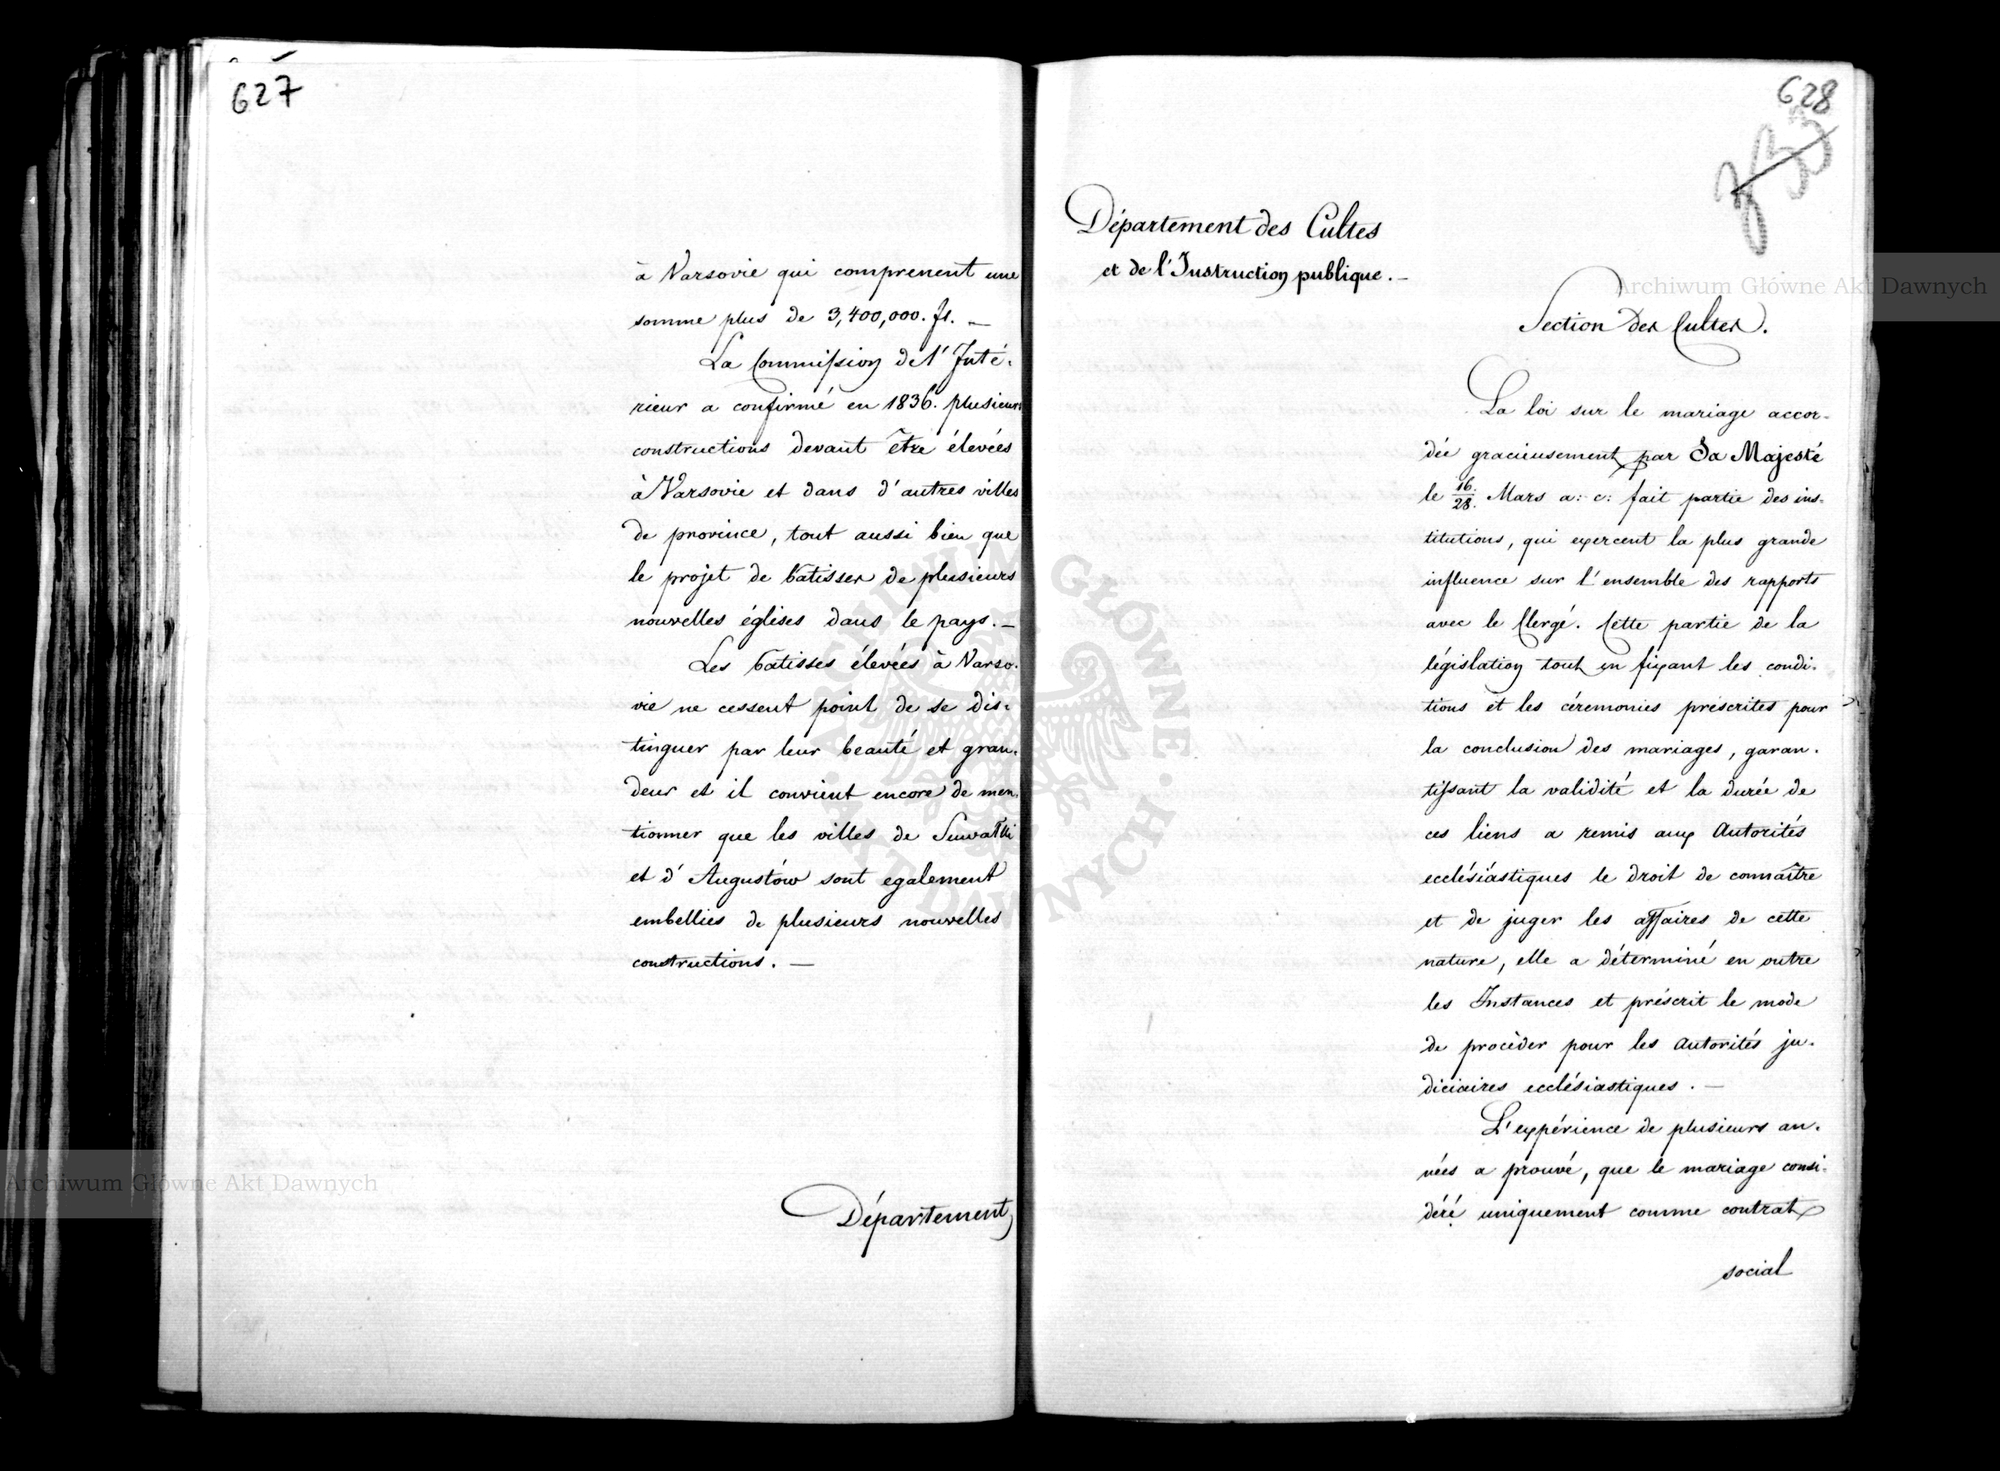 627
à Varsovie qui comprenent une
somme plus de 3,400,000. fl. —
La Commission de l'Inté-
rieur a confirmé en 1836. plusieurs
constructions devant être élevées
à Varsovie et dans d'autres villes
de province, tout aussi bien que
le projet de batisser de plusieurs
nouvelles églises dans le pays. —
Les batisses élevées à Varso-
vie ne cessent point de se dis-
tinguer par leur beauté et gran-
deur et il convient encore de men-
tionner que les villes de Suwałki
et d'Augustów sont egalement
embellies de plusieurs nouvelles
constructions. —
Département
628
Département des Cultes
et de l'Instruction publique. —
Section des Cultes.
La loi sur le mariage accor-
dée gracieusement par Sa Majesté
le 16/28. Mars a: c: fait partie des ins-
titutions, qui exercent la plus grande
influence sur l'ensemble des rapports
avec le Clergé. Cette partie de la
législation tout en fixant les condi-
tions et les céremonies préscrites pour
la conclusion des mariages, garan-
tissant la validité et la durée de
ces liens a remis aux Autorités
ecclésiastiques le droit de connaître
et de juger les affaires de cette
nature, elle a déterminé en outre
les Instances et préscrit le mode
de procèder pour les Autorités ju-
diciaires ecclésiastiques. —
L'expérience de plusieurs an-
nées a prouvé, que le mariage consi-
déré uniquement comme contrat
social
Archiwum Główne Akt Dawnych
Archiwum Główne Akt Dawnych
ARCHIWUM GŁÓWNE · AKT DAWNYCH ·